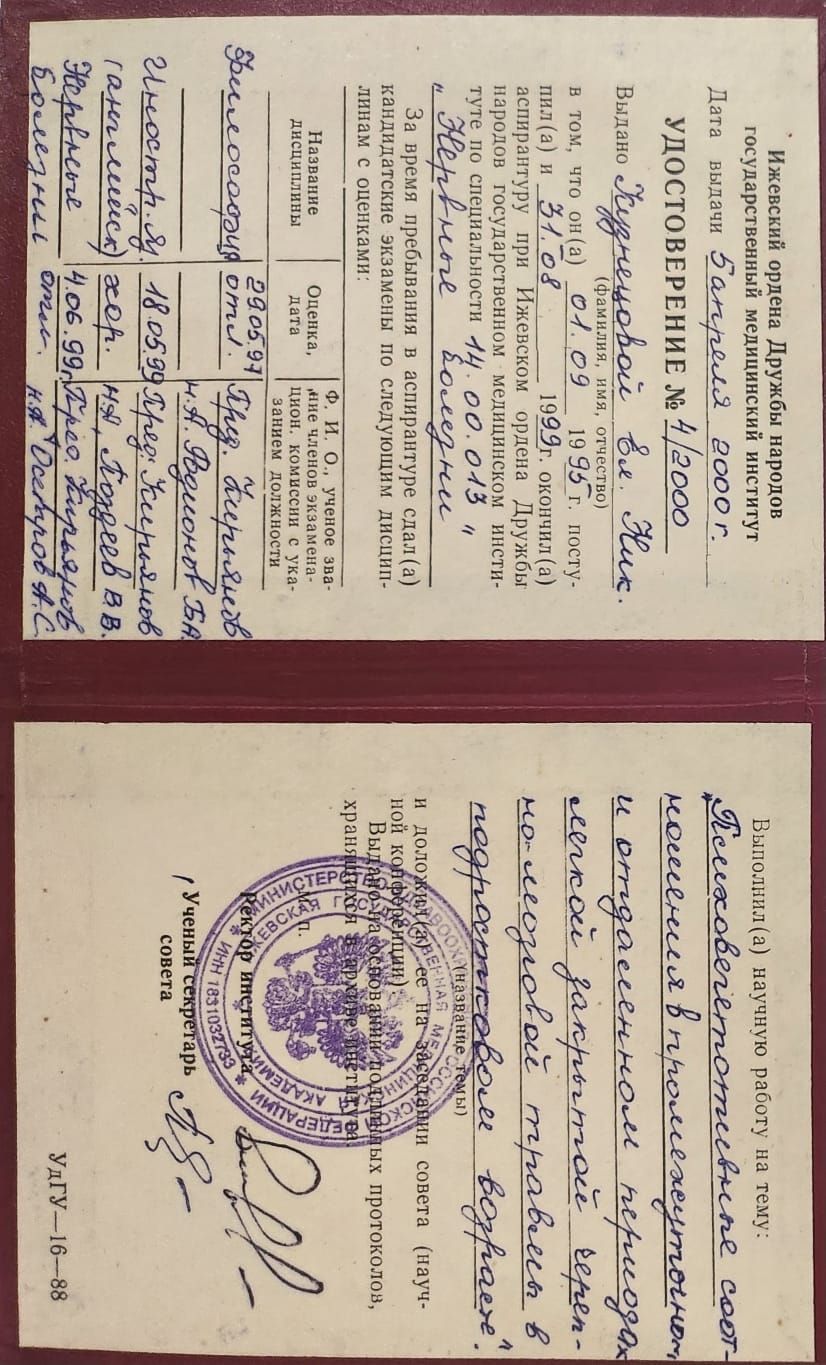 Ижевский ордена Дружбы народов
государственный медицинский институт
Дата выдачи 5 апреля 2000 г.
УДОСТОВЕРЕНИЕ № 4/2000
Выдано Кузнецовой Ел. Ник.
(фамилия, имя, отчество)
в том, что он(а) 01.09 1995 г. посту-
пил(а) и 31.08 1999г. окончил(а)
аспирантуру при Ижевском ордена Дружбы
народов государственном медицинском инсти-
туте по специальности 14.00.013 „
„Нервные болезни
За время пребывания в аспирантуре сдал(а)
кандидатские экзамены по следующим дисцип-
линам с оценками:
Название
дисциплины
Оценка,
дата
Ф. И. О., ученое зва-
ние членов экзамена-
цион. комиссии с ука-
занием должности
Философия
29.05.97
отл.
Пред. Кирьянов
Н.А. Родионов Б.А.
Иностр. яз.
(английск)
18.05.99
хор.
Пред. Кирьянов
Н.А, Поздеев В.В.
Нервные
болезни
4.06.99г.
отл.
Пред. Кирьянов
Н.А. Осетров А.С.
Выполнил(а) научную работу на тему:
„Психовегетативные соот-
ношения в промежуточном
и отдаленном периодах
легкой закрытой череп-
но-мозговой травмы в
подростковом возрасте".
(название темы)
и доложил(а) ее на заседании совета (науч-
ной конференции).
Выдано на основании подлинных протоколов,
хранящихся в архиве института.
М. п.
Ректор института
Ученый секретарь
совета
МИНИСТЕРСТВО ЗДРАВООХРАНЕНИЯ РОССИЙСКОЙ ФЕДЕРАЦИИ
ИЖЕВСКАЯ ГОСУДАРСТВЕННАЯ МЕДИЦИНСКАЯ АКАДЕМИЯ
* ИНН 1831032733 *
УдГУ—16—88